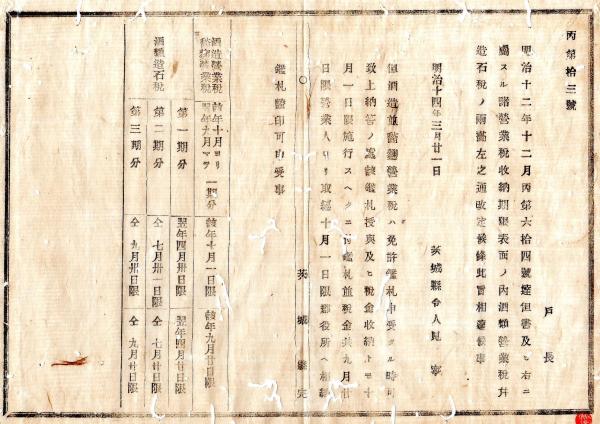 丙第拾三號
戸長
明治十二年十二月丙第六拾四號達但書及ヒ右ニ
屬スル諸營業税收納期限表面ノ内酒類營業税幷
造石税ノ兩滿左之通改定候條此旨相達候事
明治十四年三月廿一日
茨城縣令人見寧
但酒造並酒麹營業税ハ免許鑑札申受クル時可
致上納筈ノ處該鑑札授與及ヒ税金收納トモ十
月一日限施行スヘクニ付鑑札並税金共九月廿
日限營業人ヨリ取纒十月一日限郡役所ヘ相納
鑑札證印可申受事
茨城縣
酒造營業税
麹營業税
該年十月ヨリ
翌年九月マテ
一期分
該年十月一日限
該年九月廿日限
酒類造石税
第一期分
翌年四月卅日限
翌年四月廿日限
第二期分
仝 七月卅一日限
仝 七月廿日限
第三期分
仝 九月卅日限
仝 九月廿日限